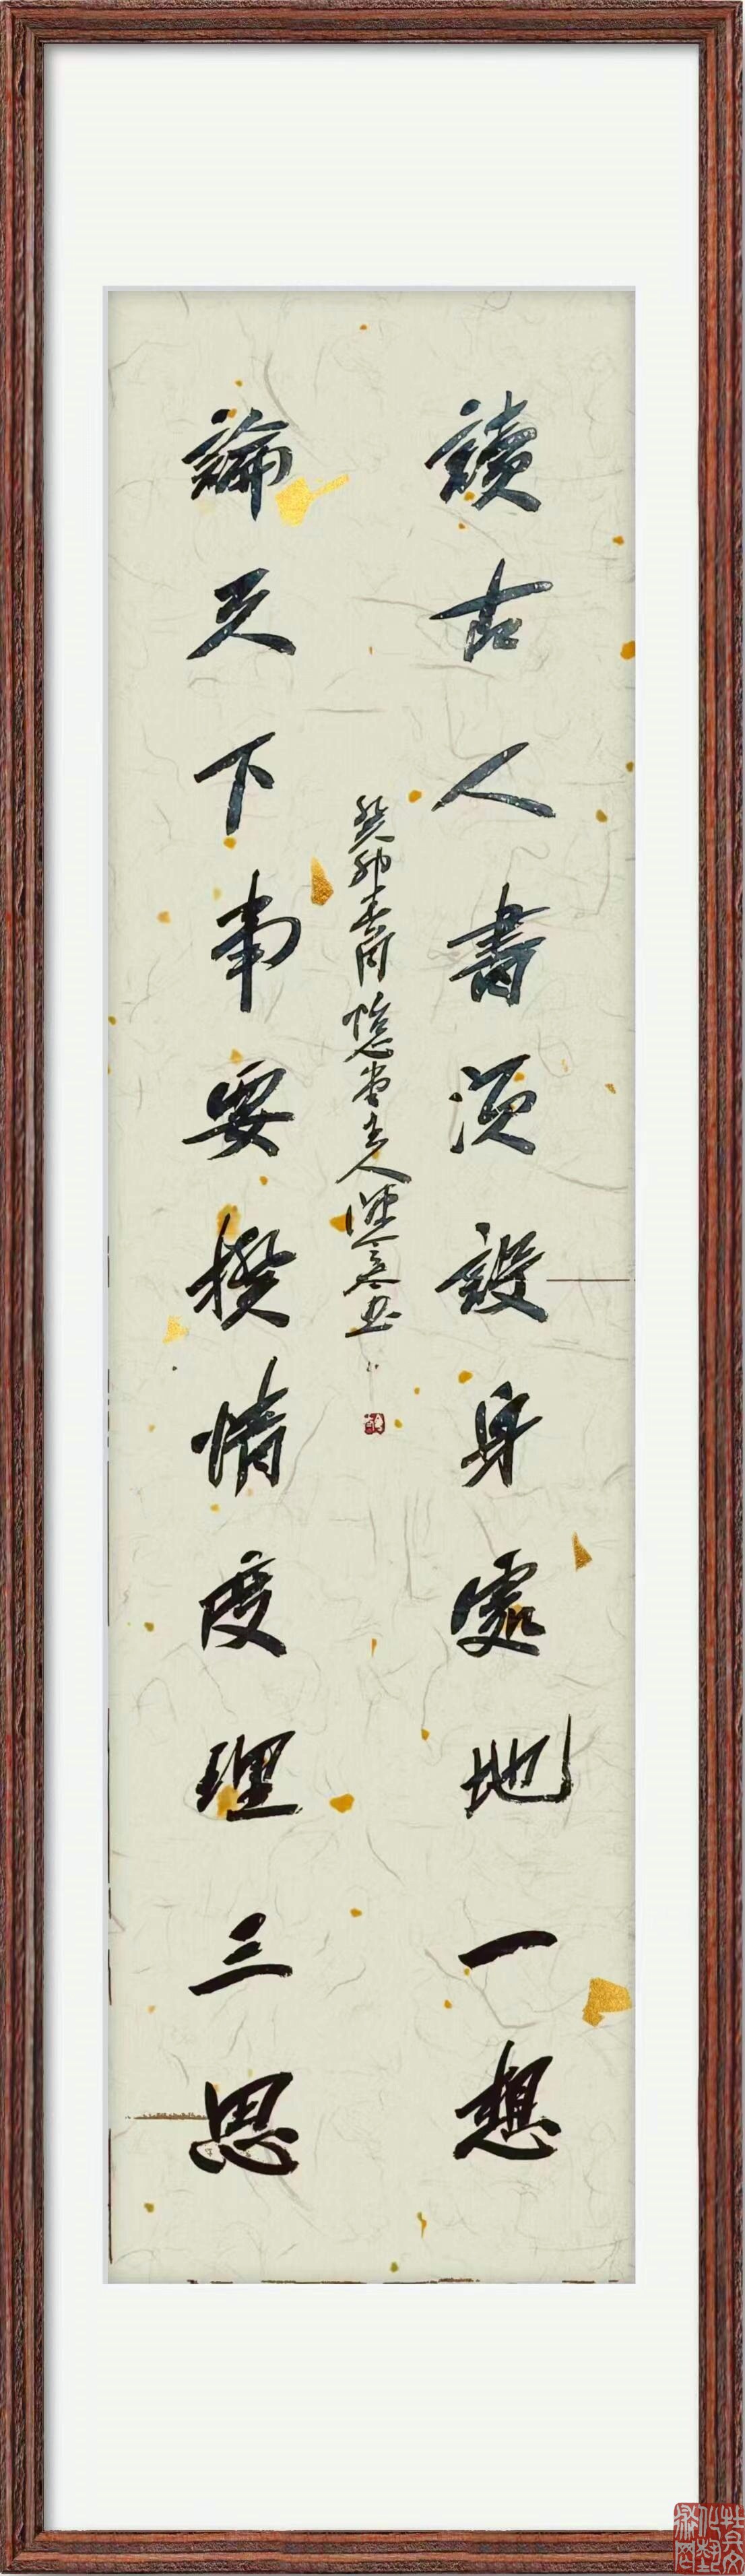 讀古人書須設身處地一想
論天下事要揆情度理三思
癸卯春月憶堂主人陳書